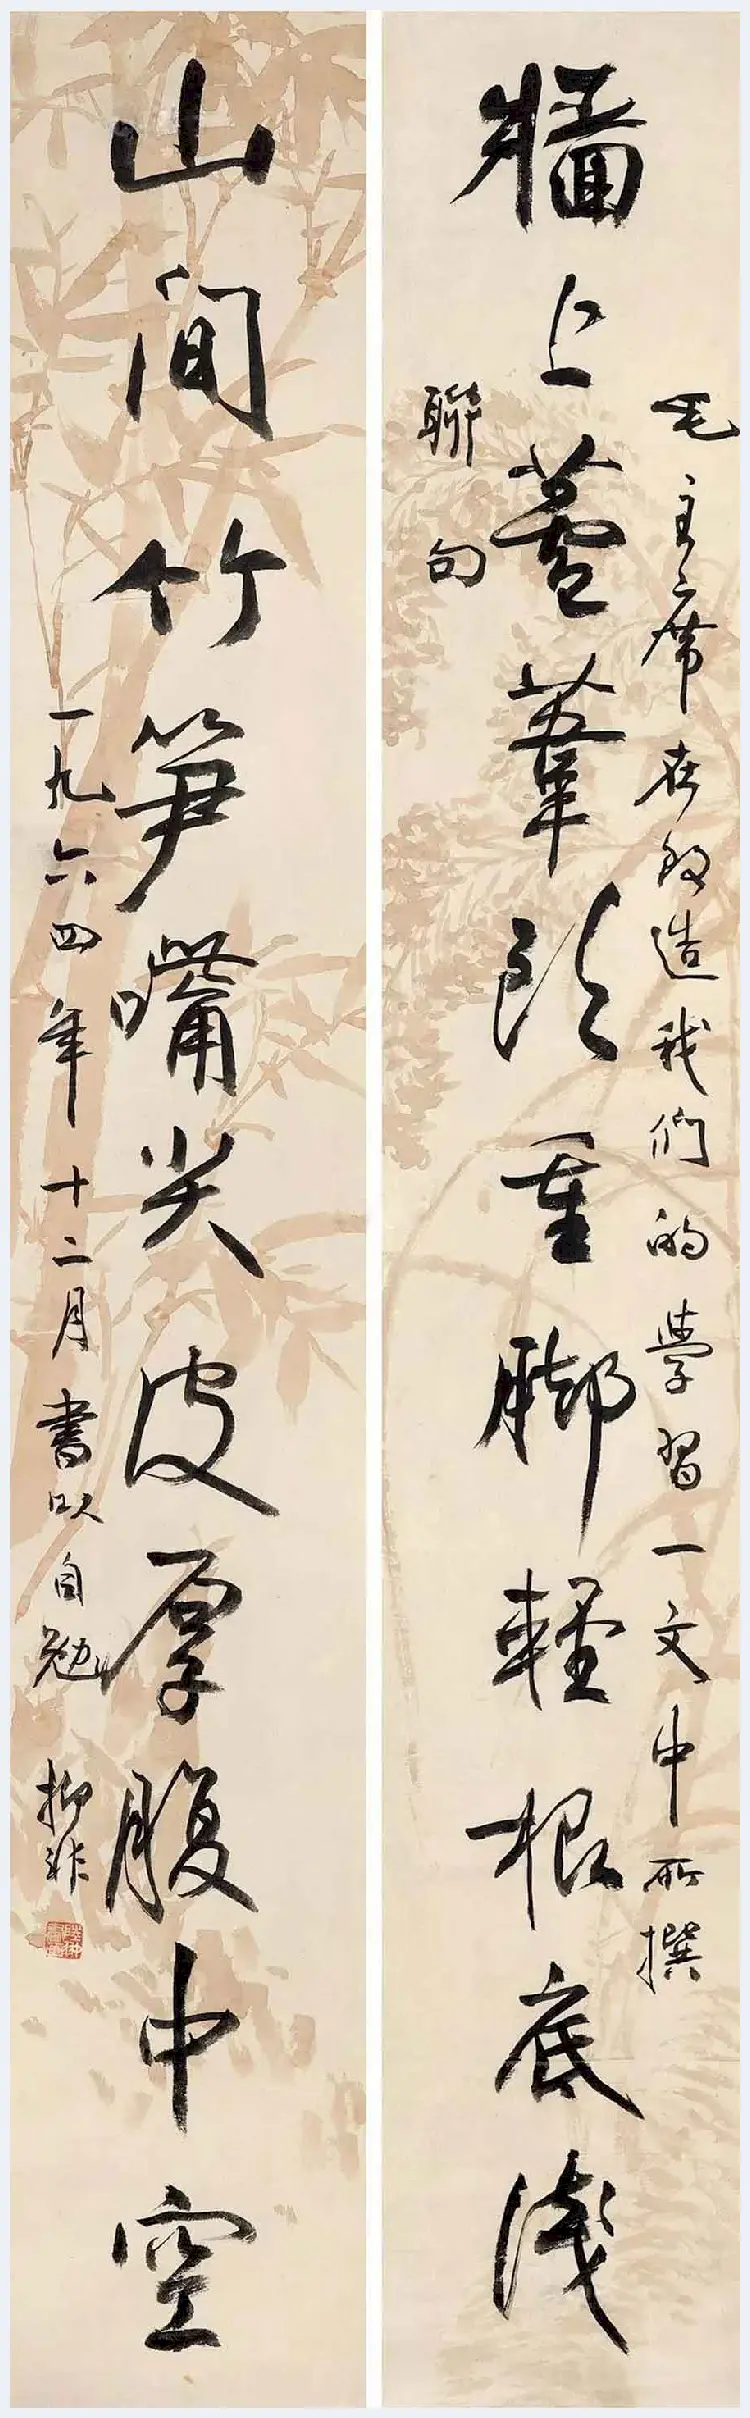 牆上蘆葦頭重脚輕根底淺
毛主席在改造我們的學習一文中所撰
聯句
山間竹笋嘴尖皮厚腹中空
一九六四年十二月書以自勉 抑非